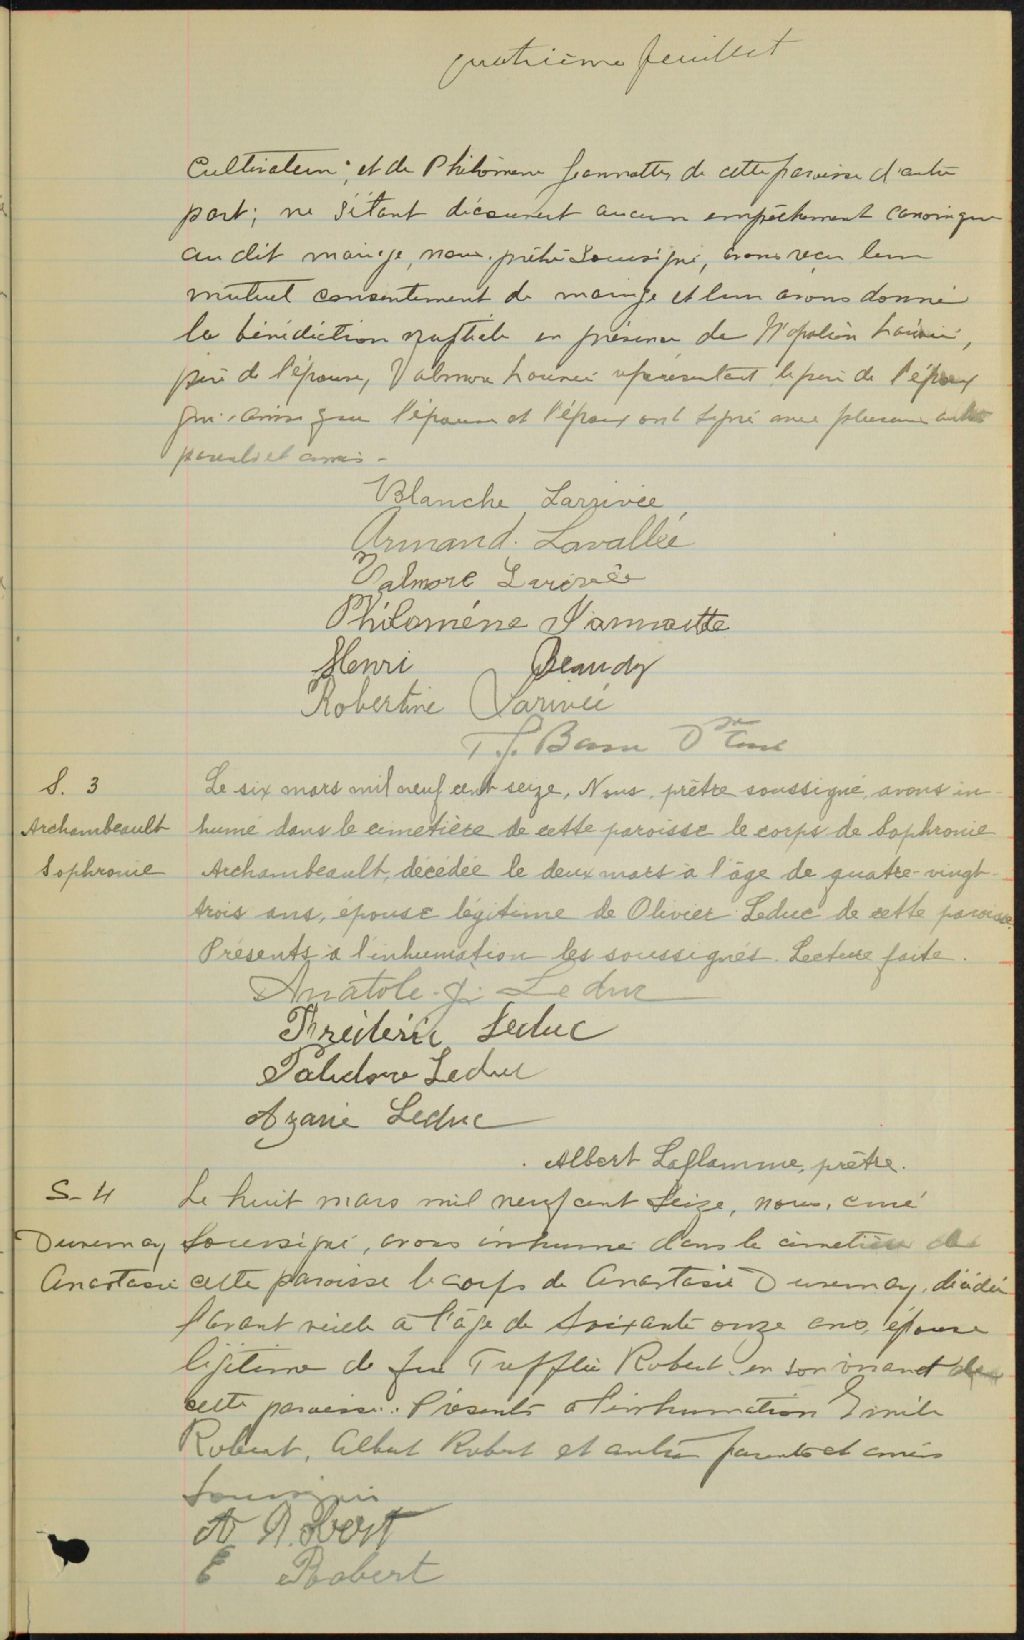 quatrième feuillet
Cultivateur; et de Philomène Jeannotte, de cette paroisse d'autre
part; ne s'étant découvert aucun empêchement canonique
au dit mariage, nous, prêtre soussigné, avons reçu leur
mutuel consentement de mariage et leur avons donné
la bénédiction nuptiale en présence de Napoléon Larivée,
père de l'épouse, Valmore Larivée représentant le père de l'époux
qui ainsi que l'épouse et l'époux ont signé avec plusieurs autres
parents et amis -
Blanche Larrivée
Armand Lavallée
Valmore Larivée
Philomène Jannotte
Henri Beaudry
Robertine Larivée
T. J. Ptre Curé
S. 3
Archambeault
Sophronie
Le six mars mil neuf cent seize, Nous, prêtre soussigné, avons in-
humé dans le cimetière de cette paroisse le corps de Sophronie
Archambeault, décédée le deux mars à l'âge de quatre-vingt-
trois ans, épouse légitime de Olivier Leduc de cette paroisse.
Présents à l'inhumation les soussignés. Lecture faite.
Anatole J. Leduc
Fréderic Leduc
Polidore Leduc
Azarie Leduc
Albert Laflamme, prêtre.
S- 4
Duvernay
Anastasie
Le huit mars mil neuf cent seize, nous, curé
soussigné, avons inhumé dans le cimetière de
cette paroisse le corps de Anastasie Duvernay, décédée
l'avant veille à l'âge de soixante onze ans, épouse
légitime de feu Trefflée Robert en son vivant de
cette paroisse. Présents à l'inhumation Emile
Robert, Albert Robert et autres parents et amis
soussignés
A Robert
E Robert